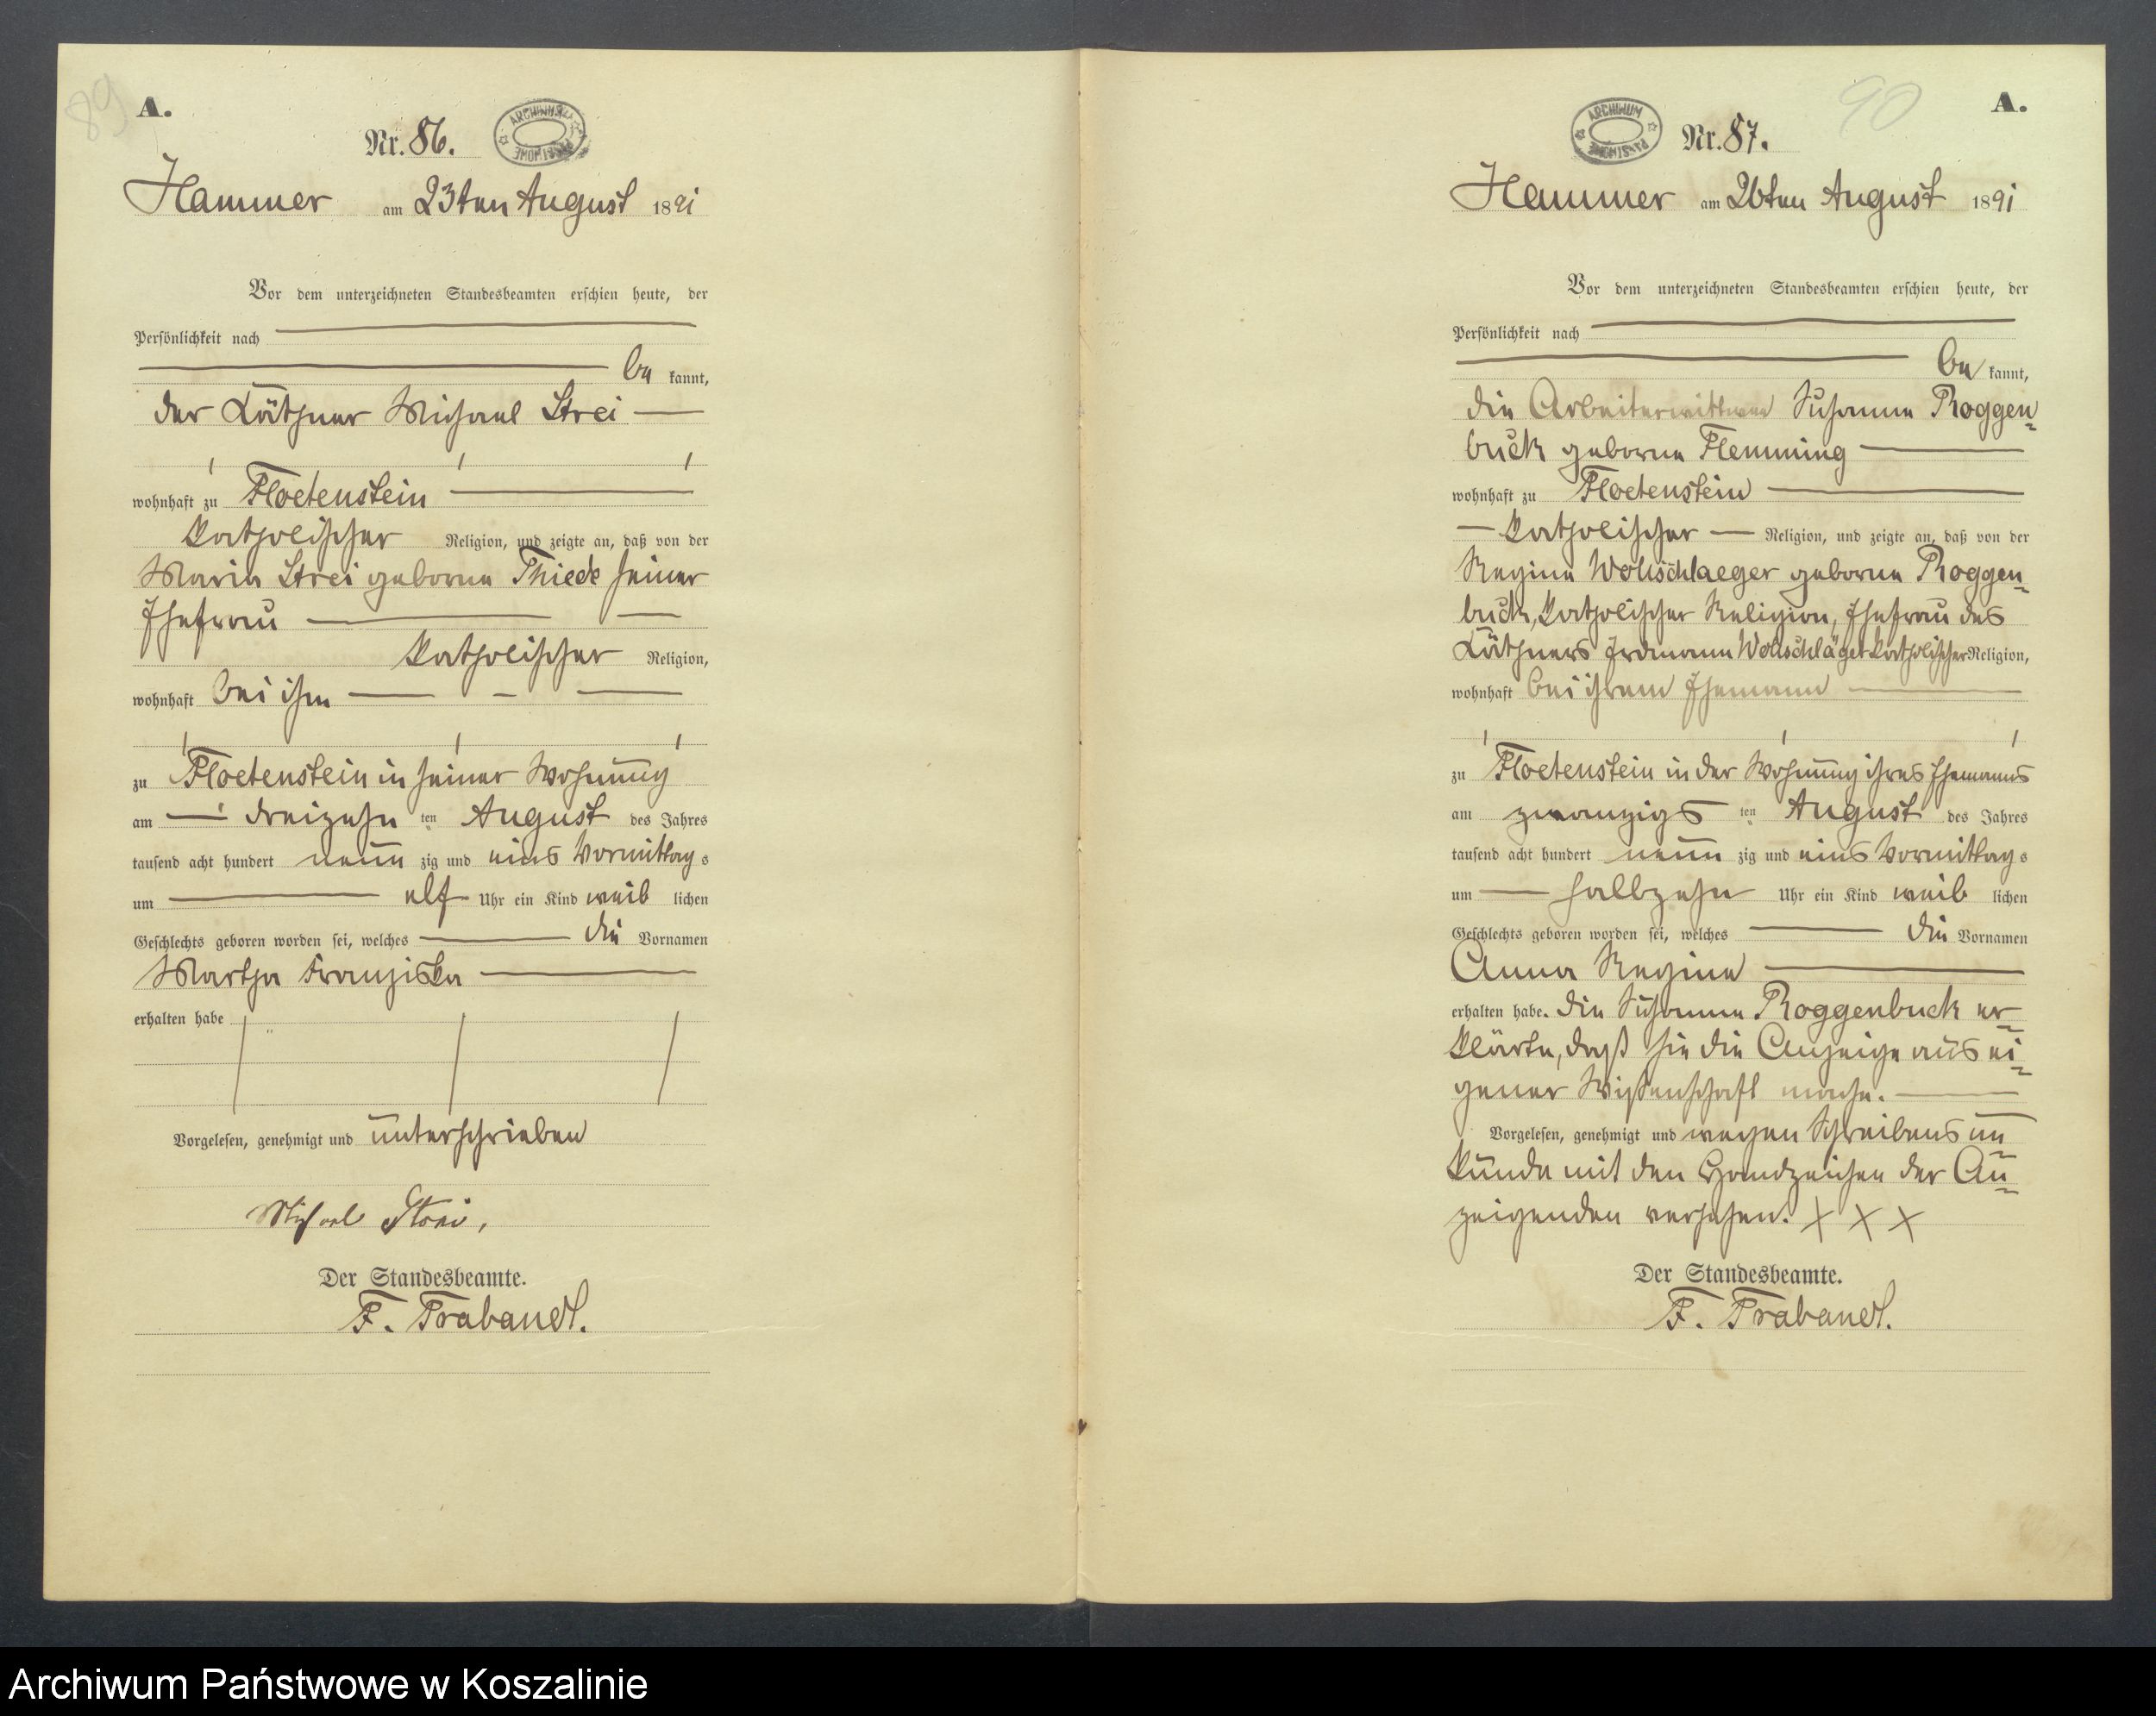 89
A.
Nr. 86.
ARCHIWUM PAŃSTWOWE
Hammer am 23ten August 1891
Vor dem unterzeichneten Standesbeamten erschien heute, der
Persönlichkeit nach
be kannt,
der Käthner Michael Strei
wohnhaft zu Floetenstein
katholischer Religion, und zeigte an, daß von der
Maria Strei geborne Thiede seiner
Ehefrau
katholischer Religion,
wohnhaft bei ihm
zu Floetenstein in seiner Wohnung
am dreizehn ten August des Jahres
tausend acht hundert neun zig und eins Vormittag s
um elf Uhr ein Kind weib lichen
Geschlechts geboren worden sei, welches die Vornamen
Martha Franziska
erhalten habe
Vorgelesen, genehmigt und unterschrieben
Michael Strei,
Der Standesbeamte.
F. Trabandt.
90
A.
ARCHIWUM PAŃSTWOWE
Nr. 87.
Hammer am 26ten August 1891
Vor dem unterzeichneten Standesbeamten erschien heute, der
Persönlichkeit nach
be kannt,
die Arbeiterwittwe Susanna Roggen-
buck geborne Flemming
wohnhaft zu Floetenstein
katholischer Religion, und zeigte an, daß von der
Regine Wollschlaeger geborne Roggen-
buck, katholischer Religion, Ehefrau des
Käthners Erdmann Wollschläger katholischer Religion,
wohnhaft bei ihrem Ehemann
zu Floetenstein in der Wohnung ihres Ehemanns
am zwanzigs ten August des Jahres
tausend acht hundert neun zig und eins Vormittag s
um halbzehn Uhr ein Kind weib lichen
Geschlechts geboren worden sei, welches die Vornamen
Anna Regine
erhalten habe. Die Susanna Roggenbuck er-
klärte, daß sie die Anzeige aus ei-
gener Wißenschaft mache.
Vorgelesen, genehmigt und wegen Schreibens un-
kunde mit den Handzeichen der An-
zeigenden versehen. X X X
Der Standesbeamte.
F. Trabandt.
Archiwum Państwowe w Koszalinie